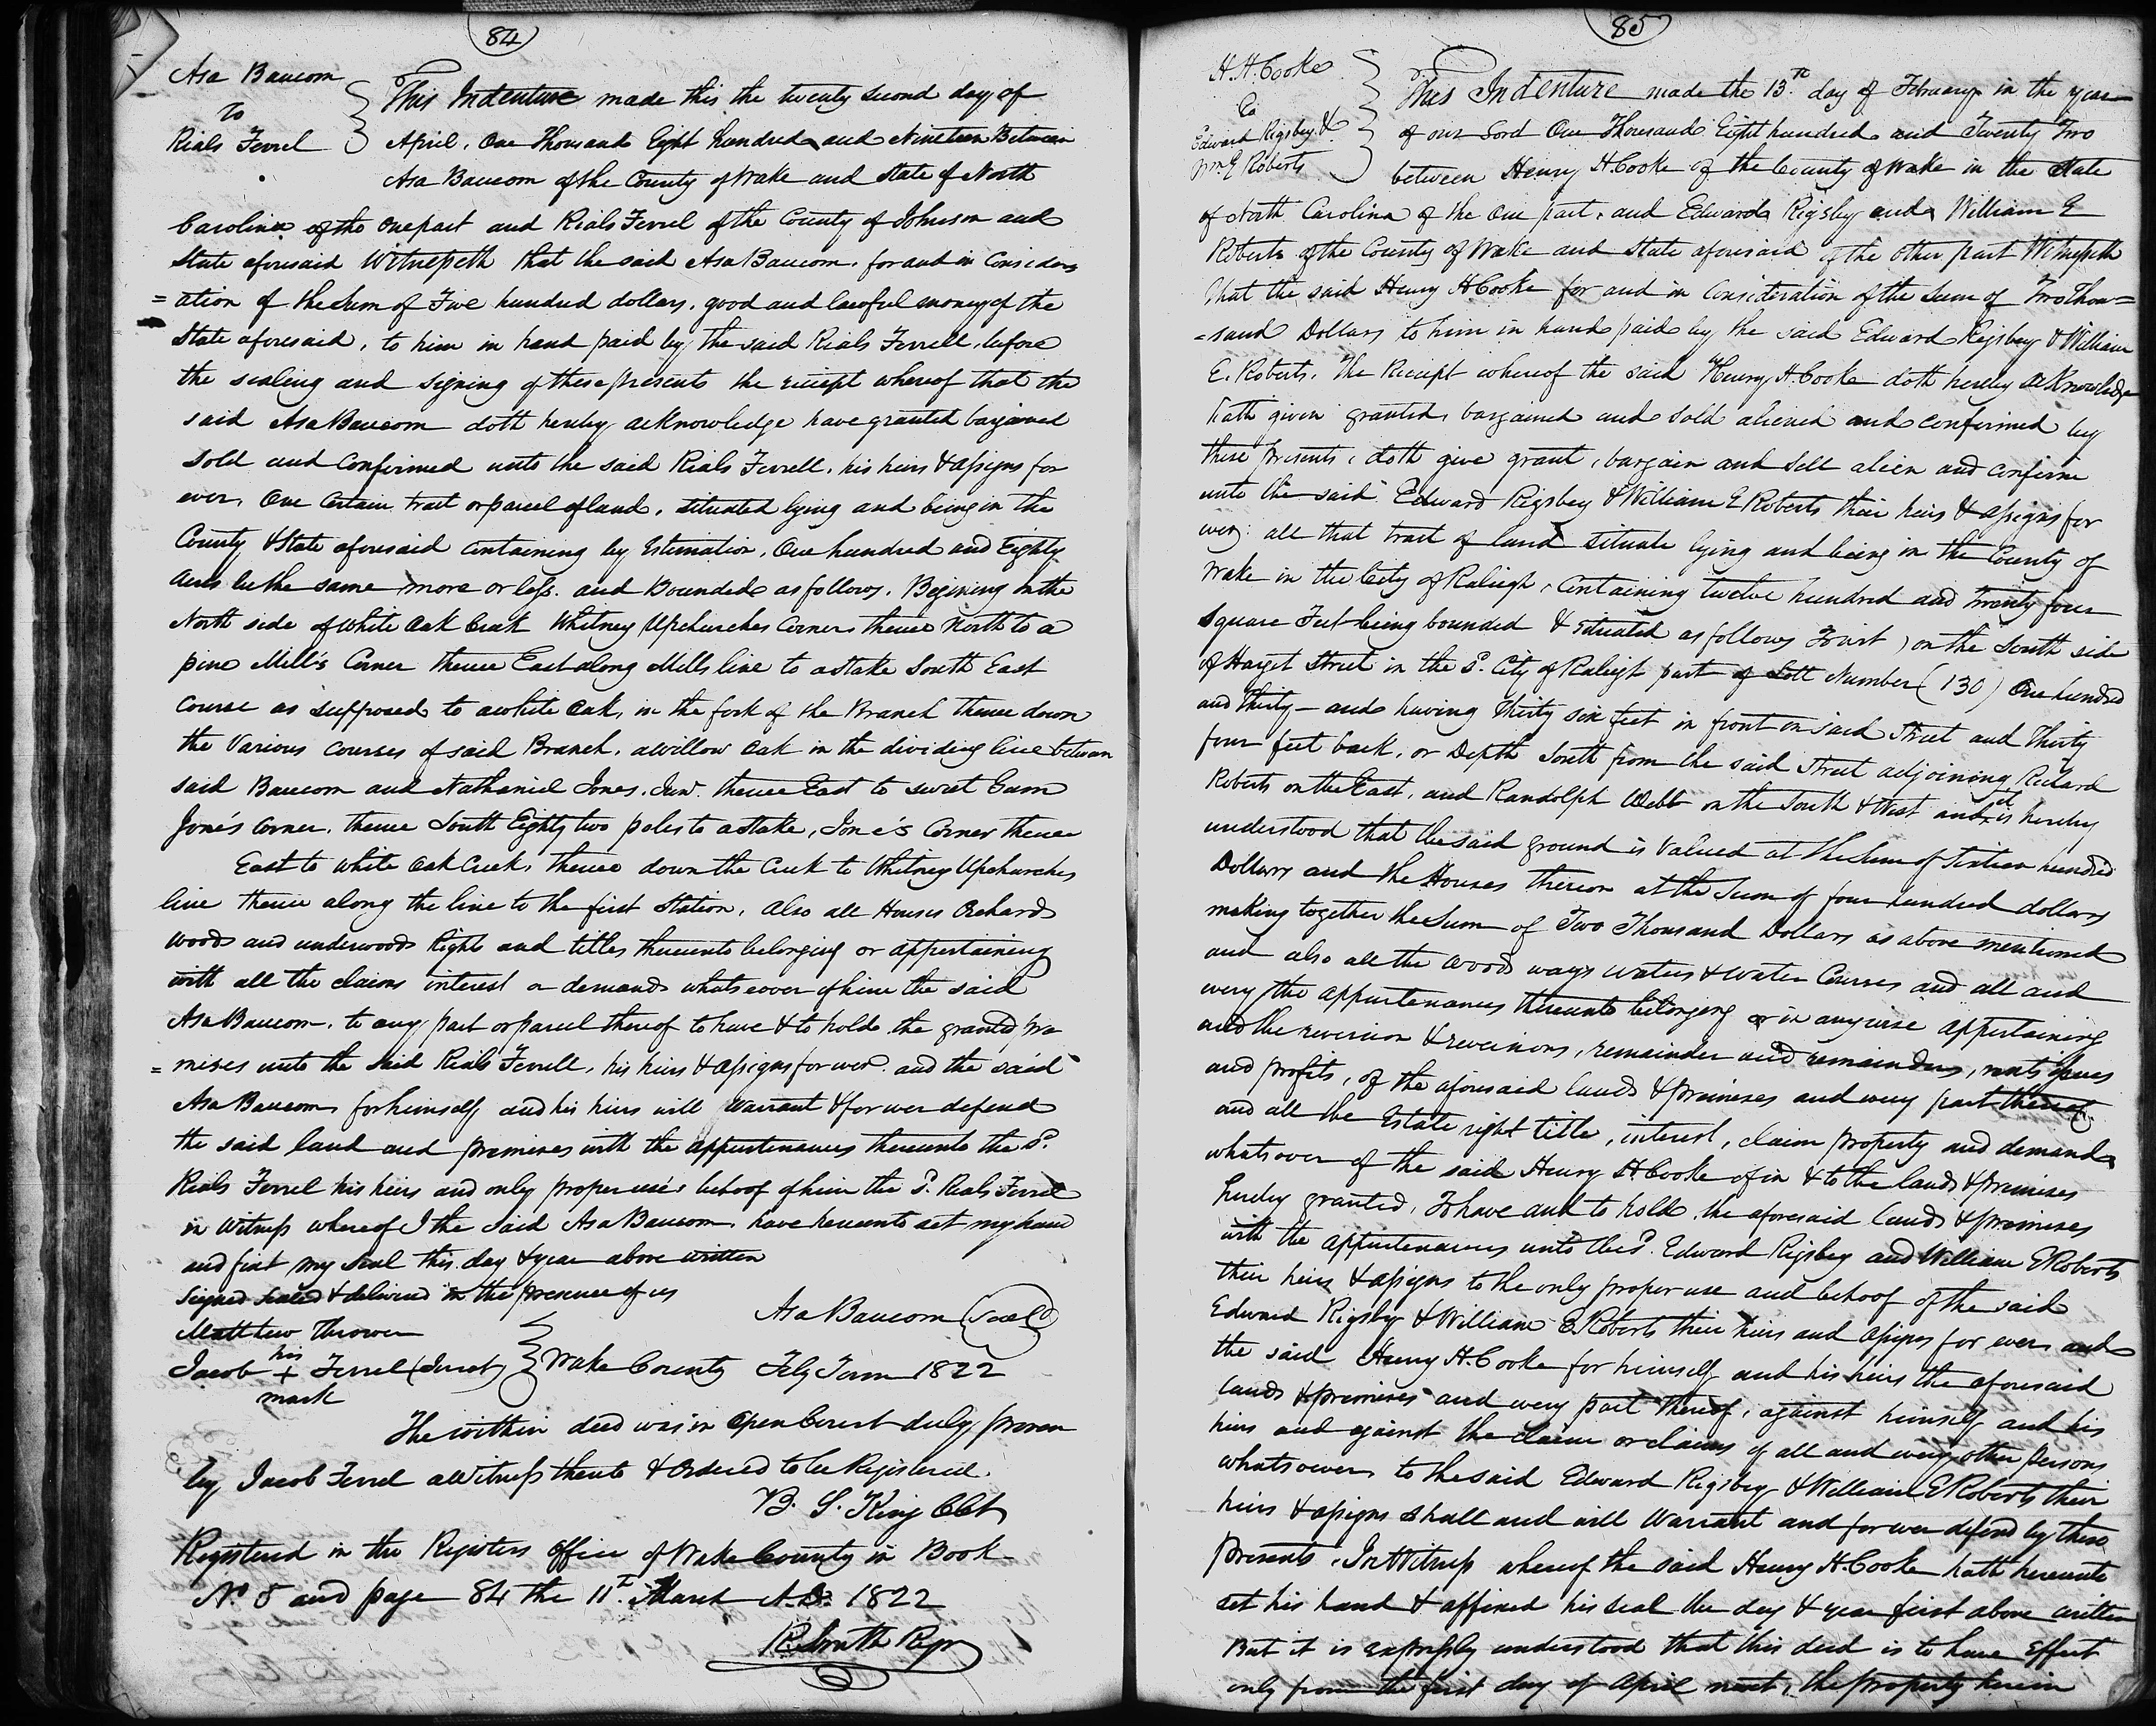 84
Asa Baucom
to
Rials Ferrel
This Indenture made this the twenty second day of
April, One Thousand Eight hundred and Nineteen Between
Asa Baucom of the County of Wake and State of North
Carolina of the one part and Rials Ferrel of the County of Johnson and
State aforesaid Witnesseth that the said Asa Baucom, for and in Consider
=ation of the Sum of Five hundred dollars, good and lawful money of the
State aforesaid, to him in hand paid by the said Rials Ferrell, before
the sealing and signing of these presents the receipt whereof that the
said Asa Baucom doth hereby acknowledge have granted bargained
sold and confirmed unto the said Rials Ferrell, his heirs & assigns for
ever, One Certain tract or parcel of land, situated lying and being in the
County & State aforesaid containing by Estimation, One hundred and Eighty
acres be the same more or less. and Bounded as follows, Begining on the
North side of White Oak Creek Whitney Upchurches Corner thence North to a
pine Mill's Corner thence East along Mills line to a stake South East
Course as supposed to a white Oak, in the fork of the Branch thence down
the Various courses of said Branch, a willow Oak in the dividing line between
said Baucom and Nathaniel Jones, Junr. thence East to sweet Gum
Jone's Corner, thence South Eighty two poles to a stake, Jone's Corner thence
East to White Oak Creek, thence down the Creek to Whitney Upchurches
line thence along the line to the first Station, also all Houses Orchards
woods and underwoods Rights and titles thereunto belonging or appertaining
with all the claims interest or demands whatsoever of him the said
Asa Baucom, to any part or parcel thereof to have & to hold the granted pre
=mises unto the said Rials Ferrell, his heirs & assigns forever. and the said
Asa Baucom for himself and his heirs will Warrant & forever defend
the said land and premises with the appurtenances thereunto the Sd.
Rials Ferrel his heirs and only proper use & behoof of him the Sd. Rials Ferrel
in Witness whereof I the said Asa Baucom, have hereunto set my hand
and fixt my Seal this day & year above written
Signed sealed & delivered in the presence of us
Asa Baucom (Seal)
Matthew Thrower
his
Jacob + Ferrel (Jurat) Wake County Feby Term 1822
mark
The within deed was in open Court duly proven
by Jacob Ferrel a Witness thereto & Ordered to be Registered.
B. S. King Clk
Registered in the Registers Office of Wake County in Book
No 5 and page 84 the 11th. March A.D. 1822
R Smith Regr
85
H. H. Cooke
to
Edward Rigsbey &
Wm. E Roberts
This Indenture made the 13th day of February in the year
of our Lord One Thousand Eight hundred and Twenty Two
between Henry H. Cooke of the County of Wake in the State
of North Carolina of the One part, and Edward Rigsby and William E
Roberts of the County of Wake and State aforesaid of the other part Witnesseth
that the said Henry H Cooke for and in Consideration of the Sum of Two Thou=
=sand Dollars to him in hand paid by the said Edward Rigsbey & William
E. Roberts. The Receipt whereof the said Henry H. Cooke doth hereby acknowledge
hath given granted, bargained and sold aliened and confirmed by
these Presents, doth give grant, bargain and sell alien and confirm
unto the said Edward Rigsbey & William E Roberts their heirs & assigns for
ever; all that tract of land situate lying and being in the County of
Wake in the City of Raleigh, containing twelve hundred and twenty four
square Feet being bounded & situated as follows First) on the South side
of Harget Street in the Sd. City of Raleigh part of Lott Number (130) One hundred
and thirty - and having Thirty six feet in front on said Street and Thirty
four feet back, or Depth South from the said Street adjoining Richard
Roberts on the East, and Randolph Webb on the South & West and it is hereby
understood that the said ground is Valued at the Sum of Sixteen hundred
Dollars and the Houses thereon at the Sum of four hundred dollars
making together the Sum of Two Thousand Dollars as above mentioned
and also all the woods ways waters & water Courses and all and
every the appurtenances thereunto belonging or in anywise appertaining
and the reversion & reversions, remainder and remainders, rents issues
and profits, of the aforesaid lands & premises and every part thereof,
and all the Estate right title, interest, claim property and demand
whatsoever of the said Henry H. Cooke of in & to the lands & premises
hereby granted, To have and to hold the aforesaid lands & premises
with the appurtenances unto the Sd. Edward Rigsbey and William E Roberts
their heirs & assigns to the only proper use and behoof of the said
Edward Rigsby & William E. Roberts their heirs and assigns for ever and
the said Henry H. Cooke for himself and his heirs the aforesaid
lands & premises and every part thereof, against himself and his
heirs and against the claim or claims of all and every other persons
whatsoever to the said Edward Rigsbey & William E Roberts their
heirs & assigns shall and will Warrant and forever defend by these
Presents. In Witness whereof the said Henry H. Cooke hath hereunto
set his hand & affixed his seal the day & year first above written
But it is expressly understood that this deed is to have Effect
only from the first day of April next, the property herein